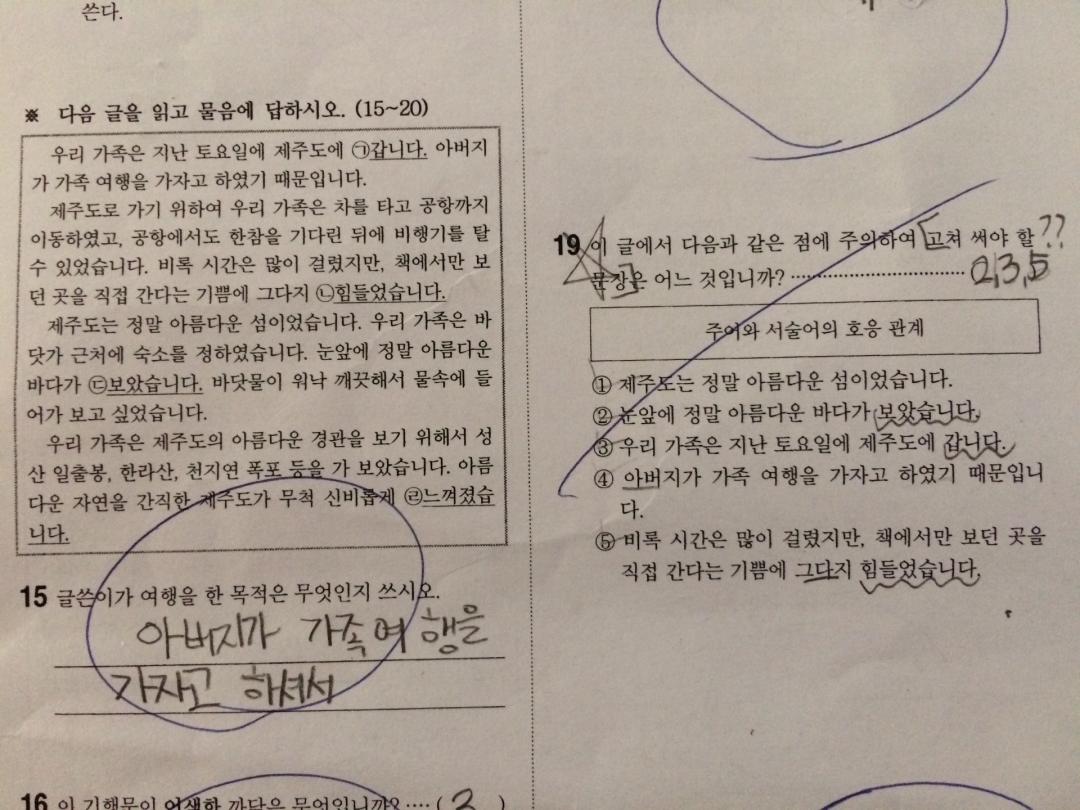 쓴다.
※ 다음 글을 읽고 물음에 답하시오. (15~20)
우리 가족은 지난 토요일에 제주도에 ㉠갑니다. 아버지
가 가족 여행을 가자고 하였기 때문입니다.
제주도로 가기 위하여 우리 가족은 차를 타고 공항까지
이동하였고, 공항에서도 한참을 기다린 뒤에 비행기를 탈
수 있었습니다. 비록 시간은 많이 걸렸지만, 책에서만 보
던 곳을 직접 간다는 기쁨에 그다지 ㉡힘들었습니다.
제주도는 정말 아름다운 섬이었습니다. 우리 가족은 바
닷가 근처에 숙소를 정하였습니다. 눈앞에 정말 아름다운
바다가 ㉢보았습니다. 바닷물이 워낙 깨끗해서 물속에 들
어가 보고 싶었습니다.
우리 가족은 제주도의 아름다운 경관을 보기 위해서 성
산 일출봉, 한라산, 천지연 폭포 등을 가 보았습니다. 아름
다운 자연을 간직한 제주도가 무척 신비롭게 ㉣느껴졌습
니다.
15 글쓴이가 여행을 한 목적은 무엇인지 쓰시오.
아버지가 가족여행을
가자고 하셔서
16 이 기행문이 어색한 까닭은 무엇입니까? ···· ( 3 )
19 이 글에서 다음과 같은 점에 주의하여 고쳐 써야 할 ??
문장은 어느 것입니까? ···························· 2,3,5
주어와 서술어의 호응 관계
① 제주도는 정말 아름다운 섬이었습니다.
② 눈앞에 정말 아름다운 바다가 보았습니다.
③ 우리 가족은 지난 토요일에 제주도에 갑니다.
④ 아버지가 가족 여행을 가자고 하였기 때문입니
다.
⑤ 비록 시간은 많이 걸렸지만, 책에서만 보던 곳을
직접 간다는 기쁨에 그다지 힘들었습니다.